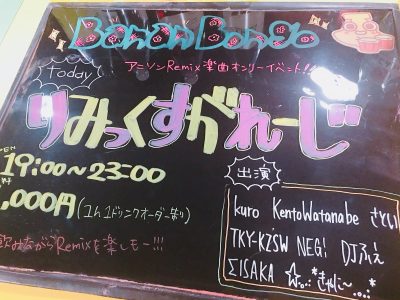 BananBongo
アニソンRemix楽曲オンリーイベント!!
today
りみっくすがれーじ
19:00~23:00
,000円(1h 1ドリンクオーダー制)
飲みながらRemixを楽しモー!!!
出演
kuro KentoWatanabe さとい
TKY-KZSW NEGi DJふえ
ΣISAKA